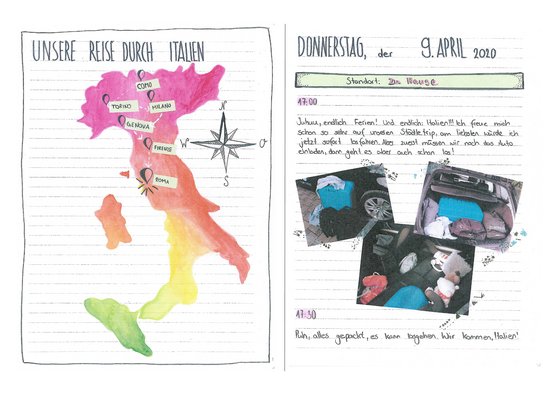 UNSERE REISE DURCH ITALIEN
COMO
TORINO
MILANO
GENOVA
FIRENZE
ROMA
N
W
O
S
DONNERSTAG, der 9. APRIL 2020
Standort: Zu Hause
17:00
Juhuu, endlich Ferien! Und endlich: Italien!!! Ich freue mich
schon so sehr auf unseren Städtetrip, am liebsten würde ich
jetzt sofort losfahren. Aber zuerst müssen wir noch das Auto
einladen, dann geht es aber auch schon los!
17:30
Puh, alles gepackt, es kann losgehen. Wir kommen, Italien!